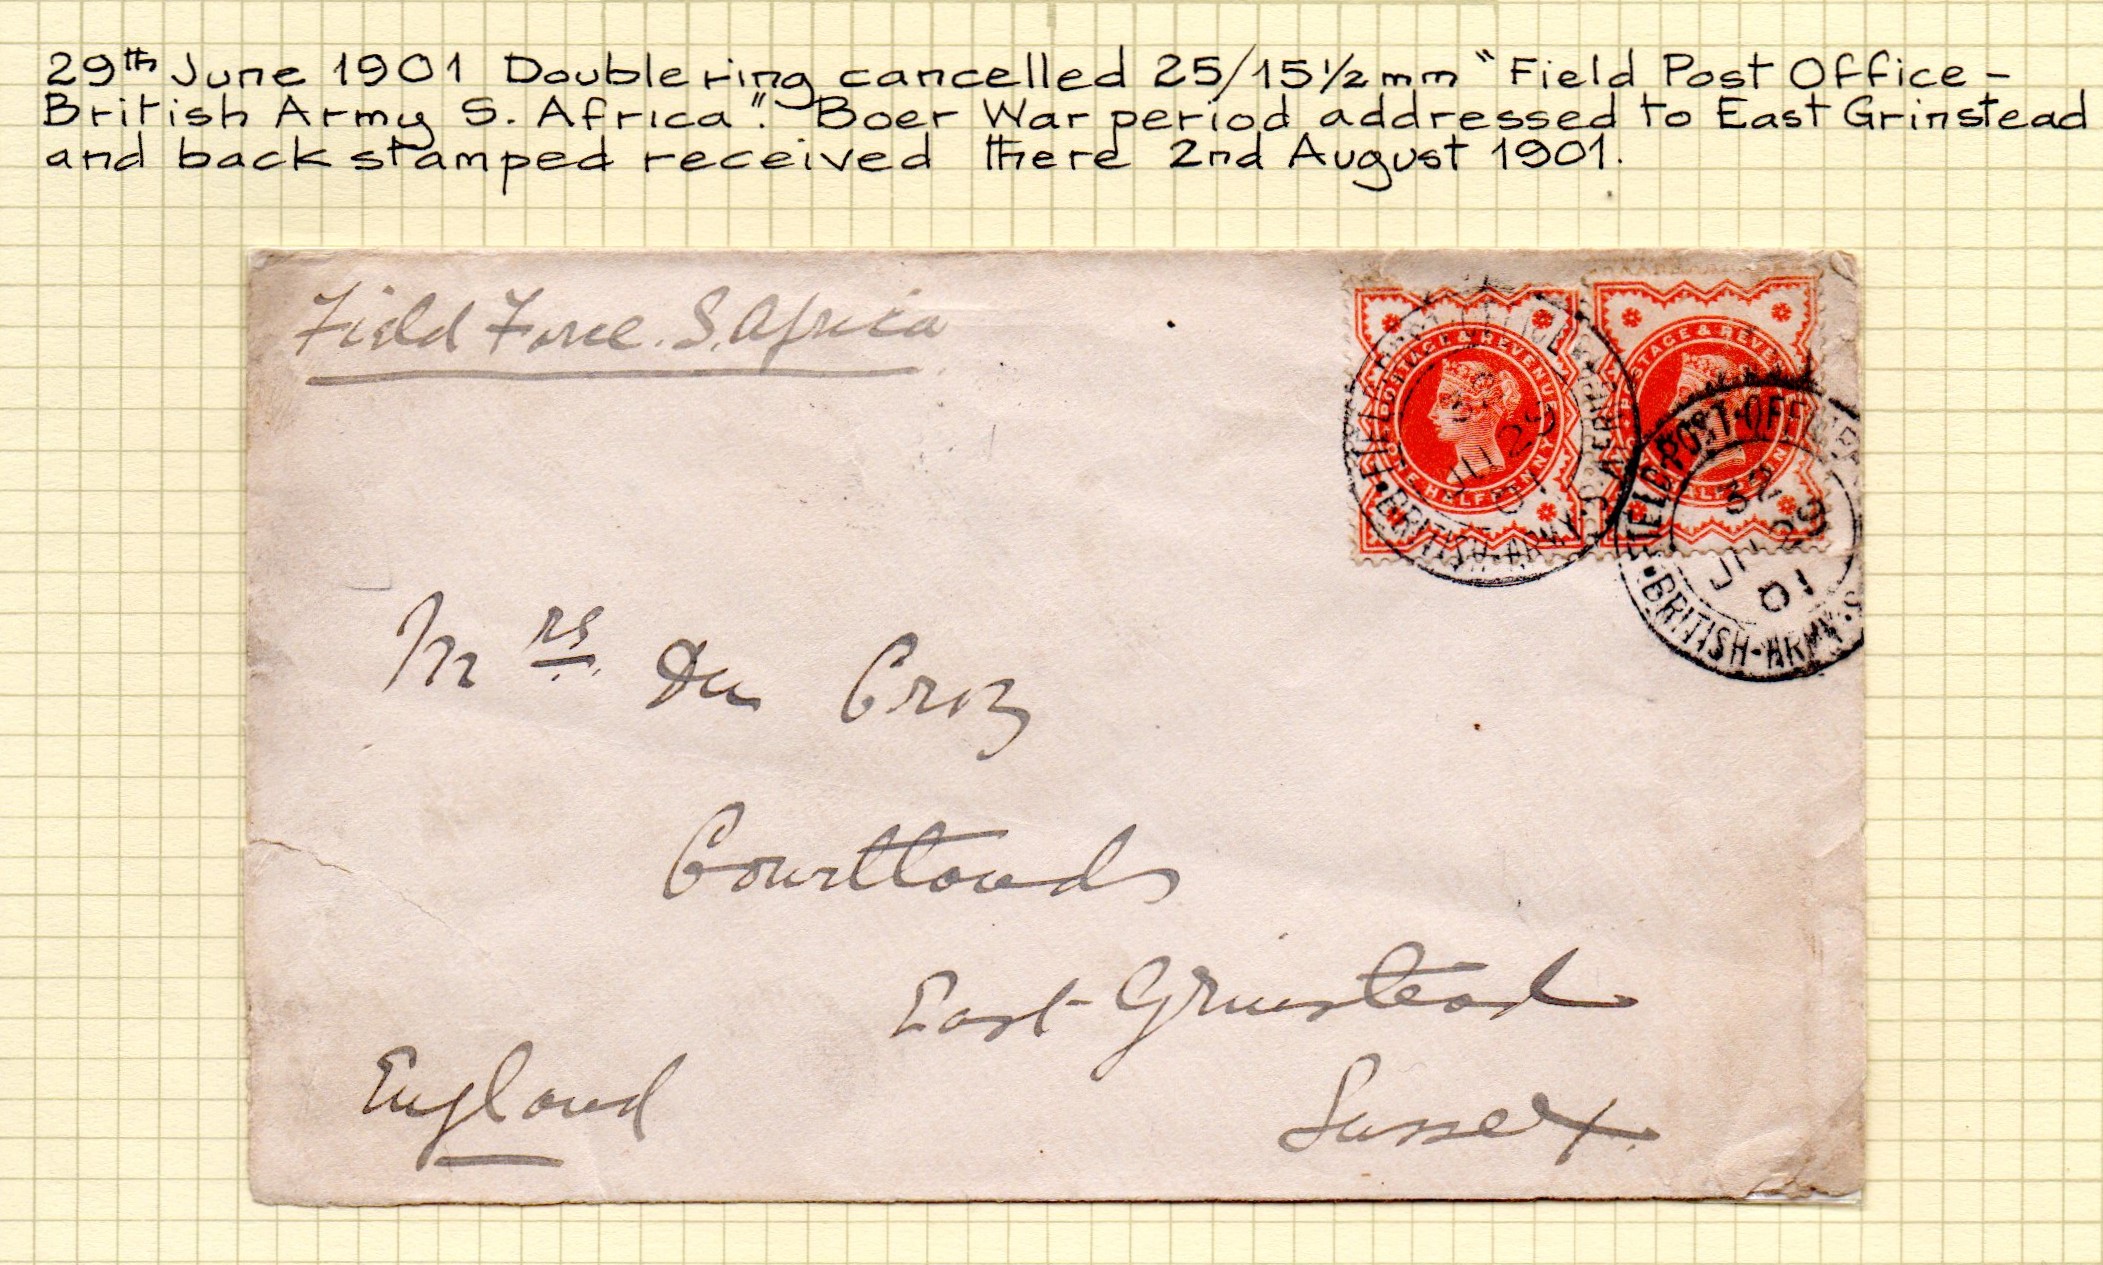 29th June 1901 Double ring cancelled 25/15½mm "Field Post Office -
British Army S. Africa". Boer War period addressed to East Grinstead
and back stamped received there 2nd August 1901.
Field Force. S. Africa
POSTAGE & REVENUE
ONE HALFPENNY
POSTAGE & REVENUE
HALFPENNY
FIELD POST OFFICE
BRITISH·ARMY·S·AFRICA
32
JU 29
01
FIELD·POST·OFFICE
BRITISH·ARMY·S.
32
JU 29
01
Mrs. Du Croz
Courtlands
East Grinstead
Sussex
England